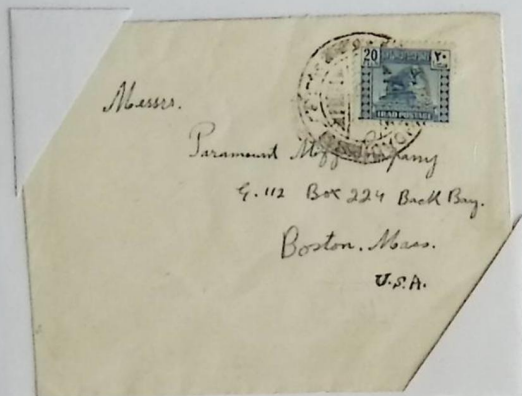 20 ٢٠
IRAQ POSTAGE
Messrs.
Paramount Mfg Company
G. 112 Box 224 Back Bay.
Boston. Mass.
U.S.A.